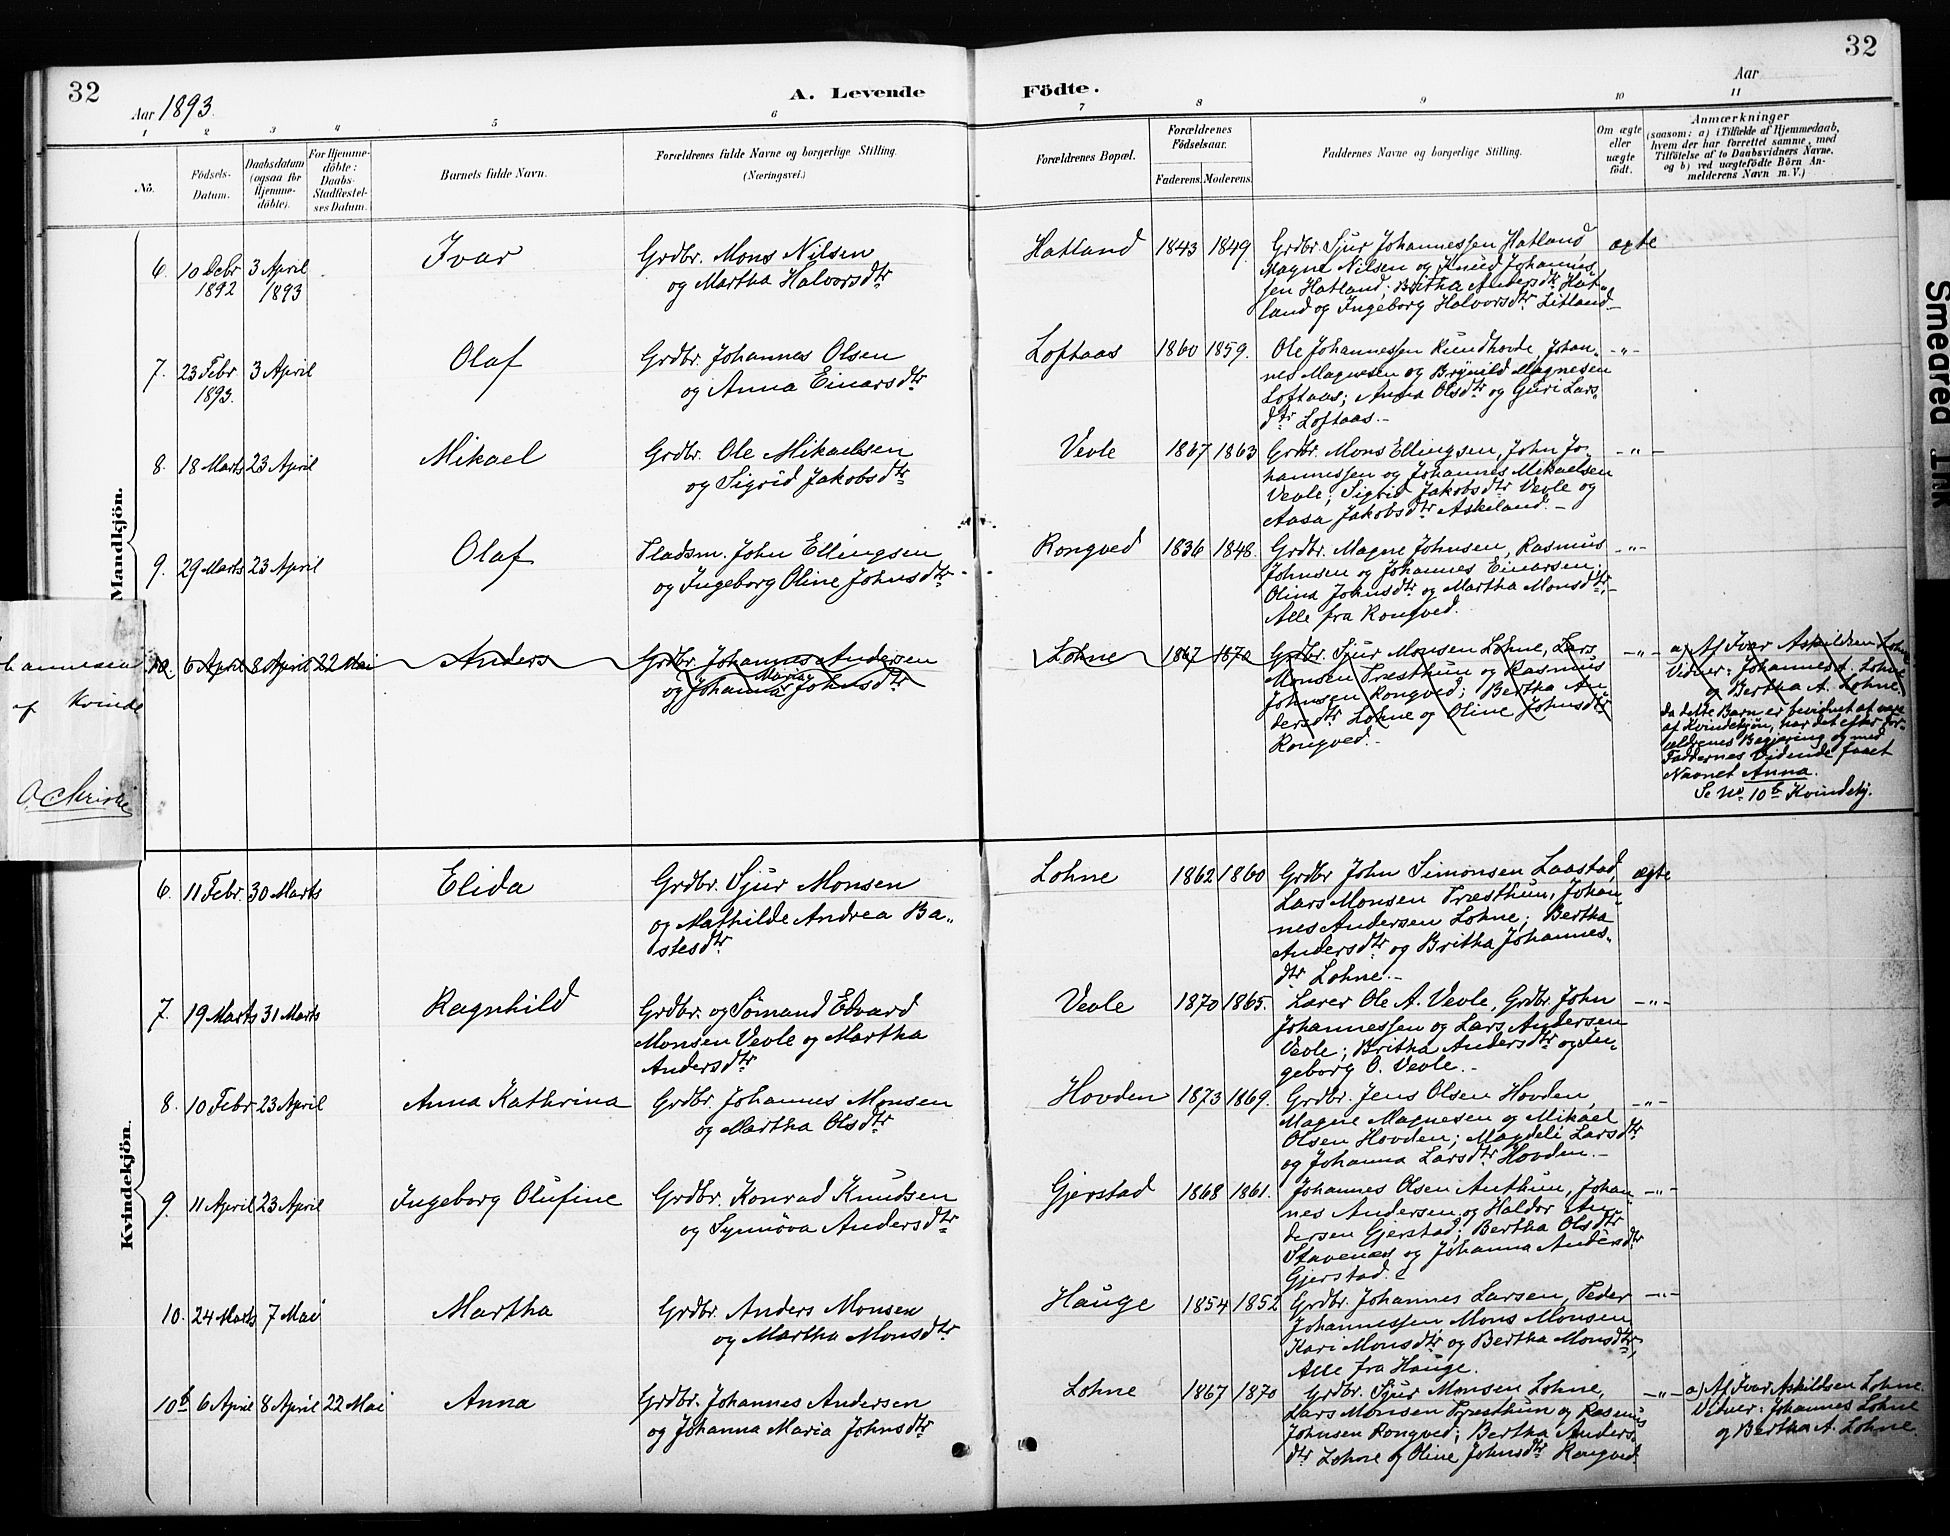 32
32
Aar 1893.
A. Levende Födte.
Aar
1 2 3 4 5 6 7 8 9 10 11
No.
Födsels-
Datum.
Daabsdatum
(ogsaa for
Hjemme-
döbte).
For Hjemme-
döbte:
Daabs-
Stadfæstel-
ses Datum.
Barnets fulde Navn.
Forældrenes fulde Navne og borgerlige Stilling.
(Næringsvei.)
Forældrenes Bopæl.
Forældrenes
Födselsaar.
Faderens. Moderens.
Faddernes Navne og borgerlige Stilling.
Om ægte
eller
uægte
födt.
Anmærkninger
(saasom: a) i Tilfælde af Hjemmedaab,
hvem der har forrettet samme, med
Tilföielse af to Daabsvidners Navne,
og b) ved uægtefödte Börn An-
melderens Navn m. V.)
Mandkjön.
6. 10 Debr 1892 3 April 1893 Ivar
Grdbr. Mons Nilsen
og Martha Halvorsdtr
Hatland 1843 1849.
Grdbr. Sjur Johannessen Hatland,
Magne Nilsen og Knud Johannes
sen Hatland; Britha Andersdtr Hat-
land og Ingeborg Halvorsdtr Litland
ægte
7. 23 Febr 1893. 3 April Olaf
Grdbr. Johannes Olsen
og Anna Einarsdtr
Loftaas 1860 1859.
Ole Johannessen Rundhovde, Johan-
nes Magnesen og Brynild Magnesen
Loftaas; Anna Olsdtr og Guri Lars-
dtr Loftaas.-
-"-
8. 18 Marts 23 April Mikael
Grdbr. Ole Mikaelsen
og Sigrid Jakobsdtr
Vevle 1867 1863
Grdbr. Mons Ellingsen, John Jo-
hannessen og Johannes Mikaelsen
Vevle; Sigrid Jakobsdtr Vevle og
Aasa Jakobsdtr Askeland.-
-"-
9. 29 Marts 23 April Olaf
Pladsm. John Ellingsen
og Ingeborg Oline Johnsdtr
Rongved 1836 1848.
Grdbr. Magne Johnsen, Rasmus
Johnsen og Johannes Einarsen;
Olina Johnsdtr og Martha Monsdtr,
Alle fra Rongved.
-"-
af Kvinde
O. Christie
10. 6 April 8 April 22 Mai Anders
Grdbr. Johannes Andersen
og Johanna Maria Johnsdtr
Lohne 1867 1870
Grdbr. Sjur Monsen Lohne, Lars
Monsen Træsthun og Rasmus
Johnsen Rongved; Bertha An-
dersdtr Lohne og Oline Johnsdtr
Rongved.-
-"-
a) Af Ivar Askildsen Lohne
Vidner: Johannes A. Lohne
og Bertha A. Lohne
Da dette Barn er bevidnet at være
af Kvindekjön, har det efter For-
ældrenes Begjæring og med
Faddernes Vidende faaet
Navnet Anna.
Se No. 10b Kvindekj.
Kvindekjön.
6. 11 Febr. 30 Marts Elida
Grdbr. Sjur Monsen
og Mathilde Andrea Ba-
stesdtr
Lohne 1862 1860
Grdbr John Simonsen Laastad,
Lars Monsen Træsthun, Johan-
nes Andersen Lohne; Bertha
Andersdtr og Britha Johannes-
dtr Lohne.-
ægte
7. 19 Marts 31 Marts Ragnhild
Grdbr. og Sömand Edvard
Monsen Vevle og Martha
Andersdtr
Vevle 1870 1865.
Lærer Ole A. Vevle, Grdbr. John
Johannessen og Lars Andersen
Vevle; Britha Andersdtr og In-
geborg O. Vevle.-
-"-
8. 10 Febr 23 April Anna Kathrina
Grdbr. Johannes Monsen
og Martha Olsdtr
Hovden 1873 1869.
Grdbr. Jens Olsen Hovden,
Magne Magnesen og Mikael
Olsen Hovden; Magdeli Larsdtr
og Johanna Larsdtr Hovden.-
-"-
9. 11 April 23 April Ingeborg Olufine
Grdbr. Konrad Knudsen
og Synnöva Andersdtr
Gjerstad 1868 1861.
Johannes Olsen Anthun, Johan-
nes Andersen og Haldor An-
dersen Gjerstad; Bertha Olsdtr
Stavenæs og Johanna Andersdtr
Gjerstad.
-"-
10. 24 Marts 7 Mai Martha
Grdbr. Anders Monsen
og Martha Monsdtr
Hauge 1854 1852
Grdbr. Johannes Larsen, Peder
Johannessen Mons Monsen
Kari Monsdtr og Bertha Monsdtr,
Alle fra Hauge.
-"-
10b 6 April 8 April 22 Mai Anna
Grdbr. Johannes Andersen
og Johanna Maria Johnsdtr
Lohne 1867 1870
Grdbr. Sjur Monsen Lohne,
Lars Monsen Træsthun og Rasmus
Johnsen Rongved; Bertha Anders-
dtr Lohne og Oline Johnsdtr Rongved.
-"-
a) Af Ivar Askildsen Lohne.
Vidner: Johannes Lohne
og Bertha A. Lohne
Smeared Ink